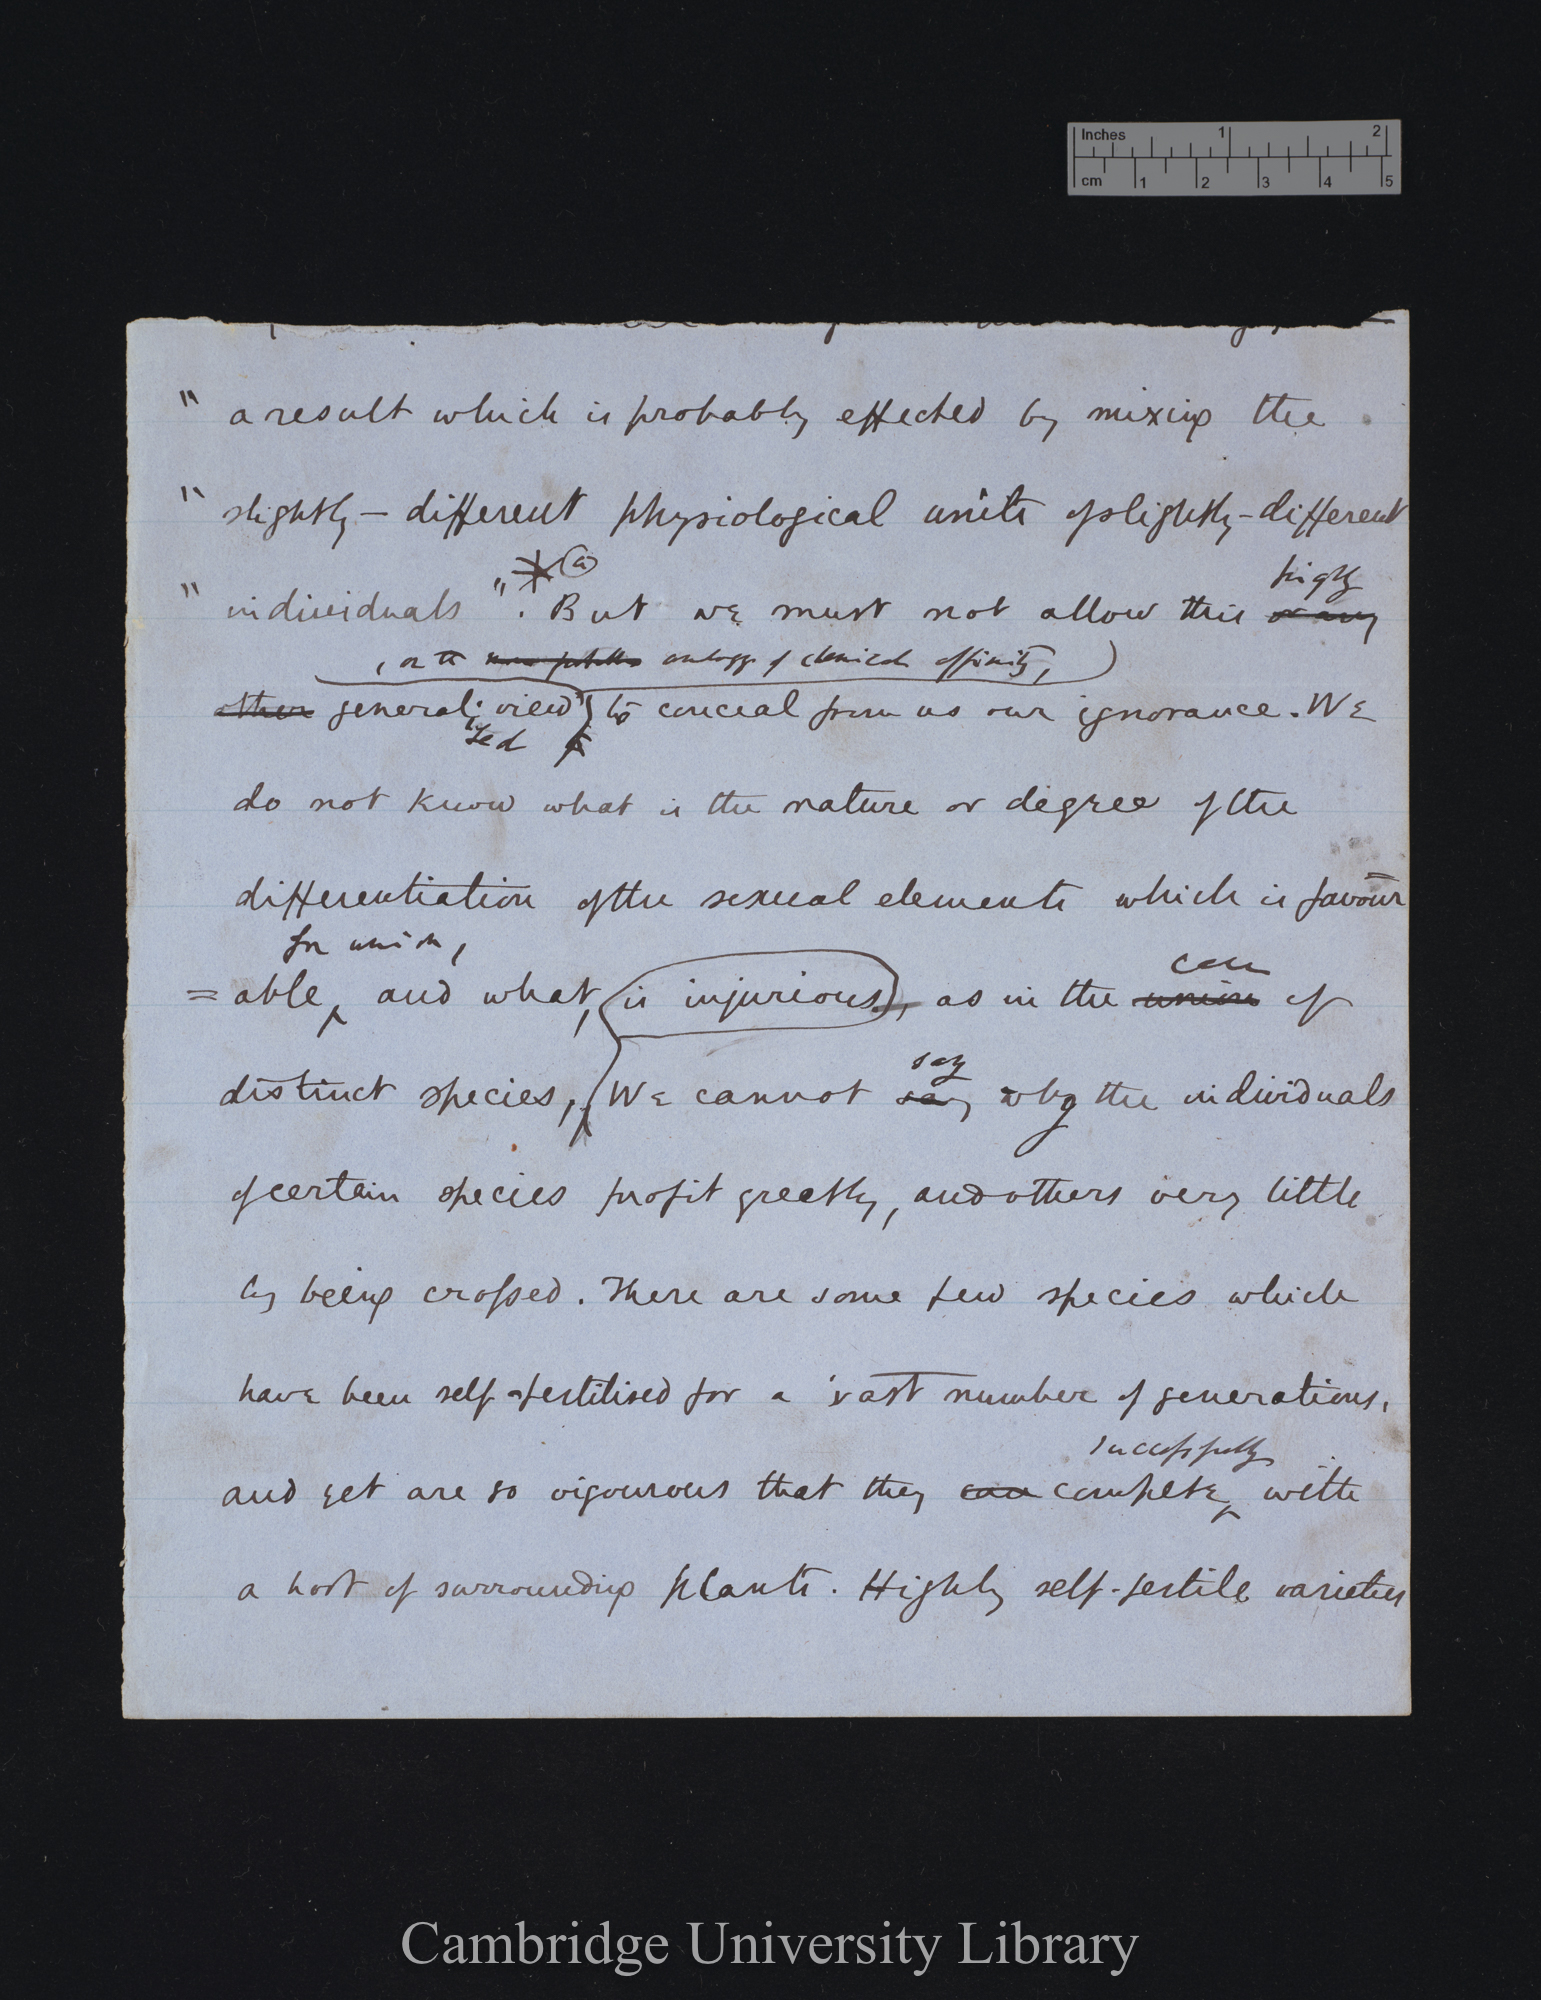 Inches 1 2
cm 1 2 3 4 5
" a result which is probably effected by mixing the
" slightly-different physiological units of slightly-different
highly
" individuals ". But we must not allow this or any
, or the analogy of chemical affinity,
other general view to conceal from us our ignorance. We
ised
do not know what is the nature or degree of the
differentiation of the sexual elements which is favour
for union,
=able, and what is injurious, as in the union of
distinct species, We cannot say why the individuals
say
of certain species profit greatly, and others very little
by being crossed. There are some few species which
have been self-fertilised for a vast number of generations,
successfully
and yet are so vigourous that they can compete with
a host of surrounding plants. Highly self-fertile varieties
Cambridge University Library